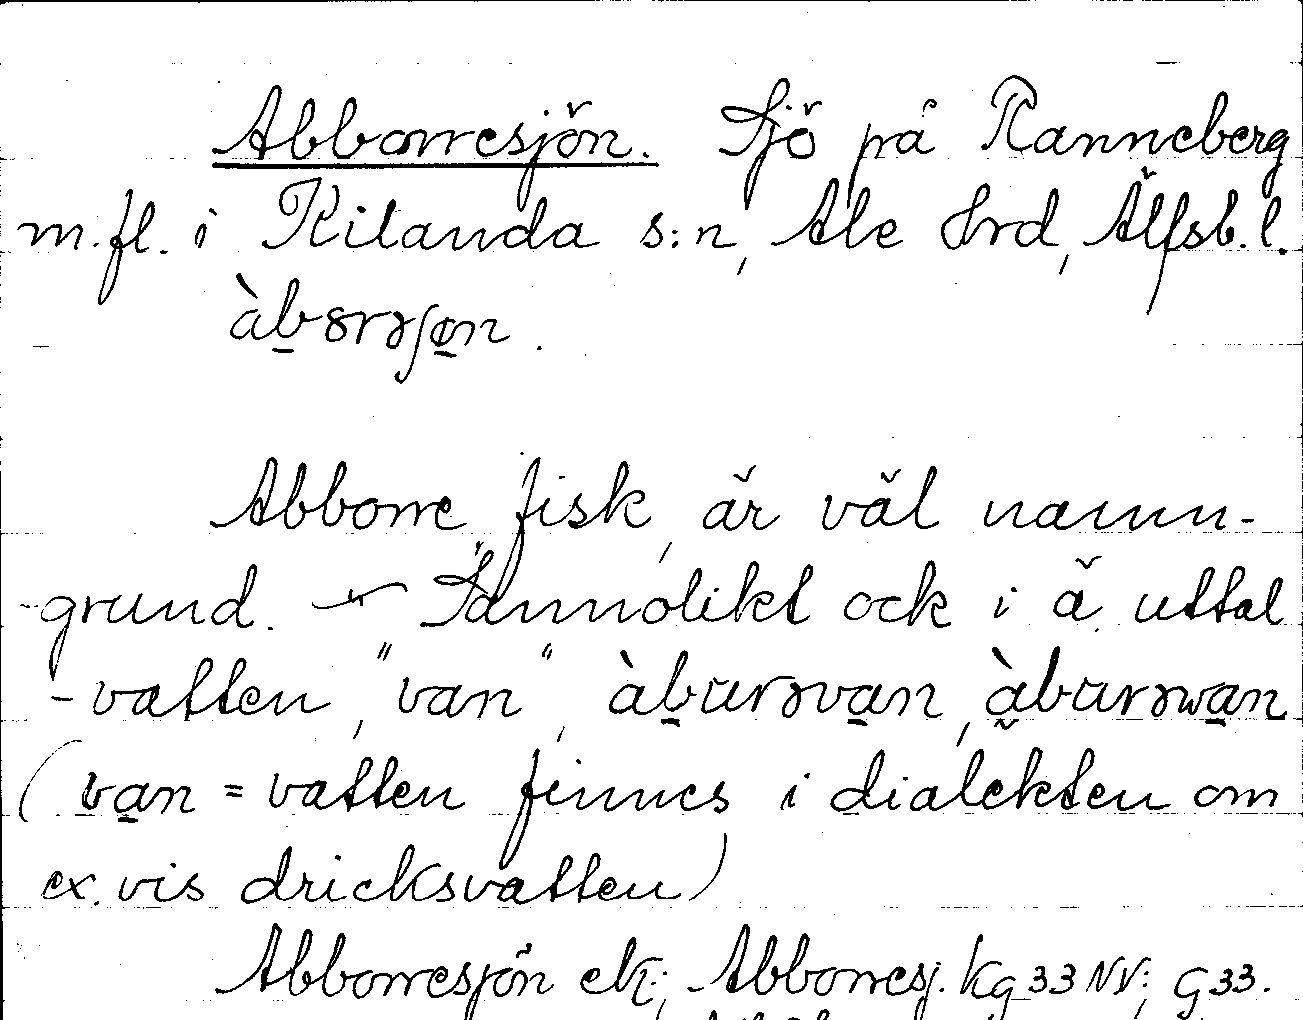 Abborresjön. Sjö på Ranneberg
m.fl. i Kilanda s:n, Ale hrd, Älfsb. l.
àbɷrəʃøn.
Abborre, fisk, är väl namn-
grund. – Sannolikt ock i ä. uttal
-vatten, "van", àbɯrəvan, àbɯrəwan
(van = vatten finnes i dialekten om
ex. vis dricksvatten)
Abborresjön ek; Abborresj. Kg 33 NV; G 33.